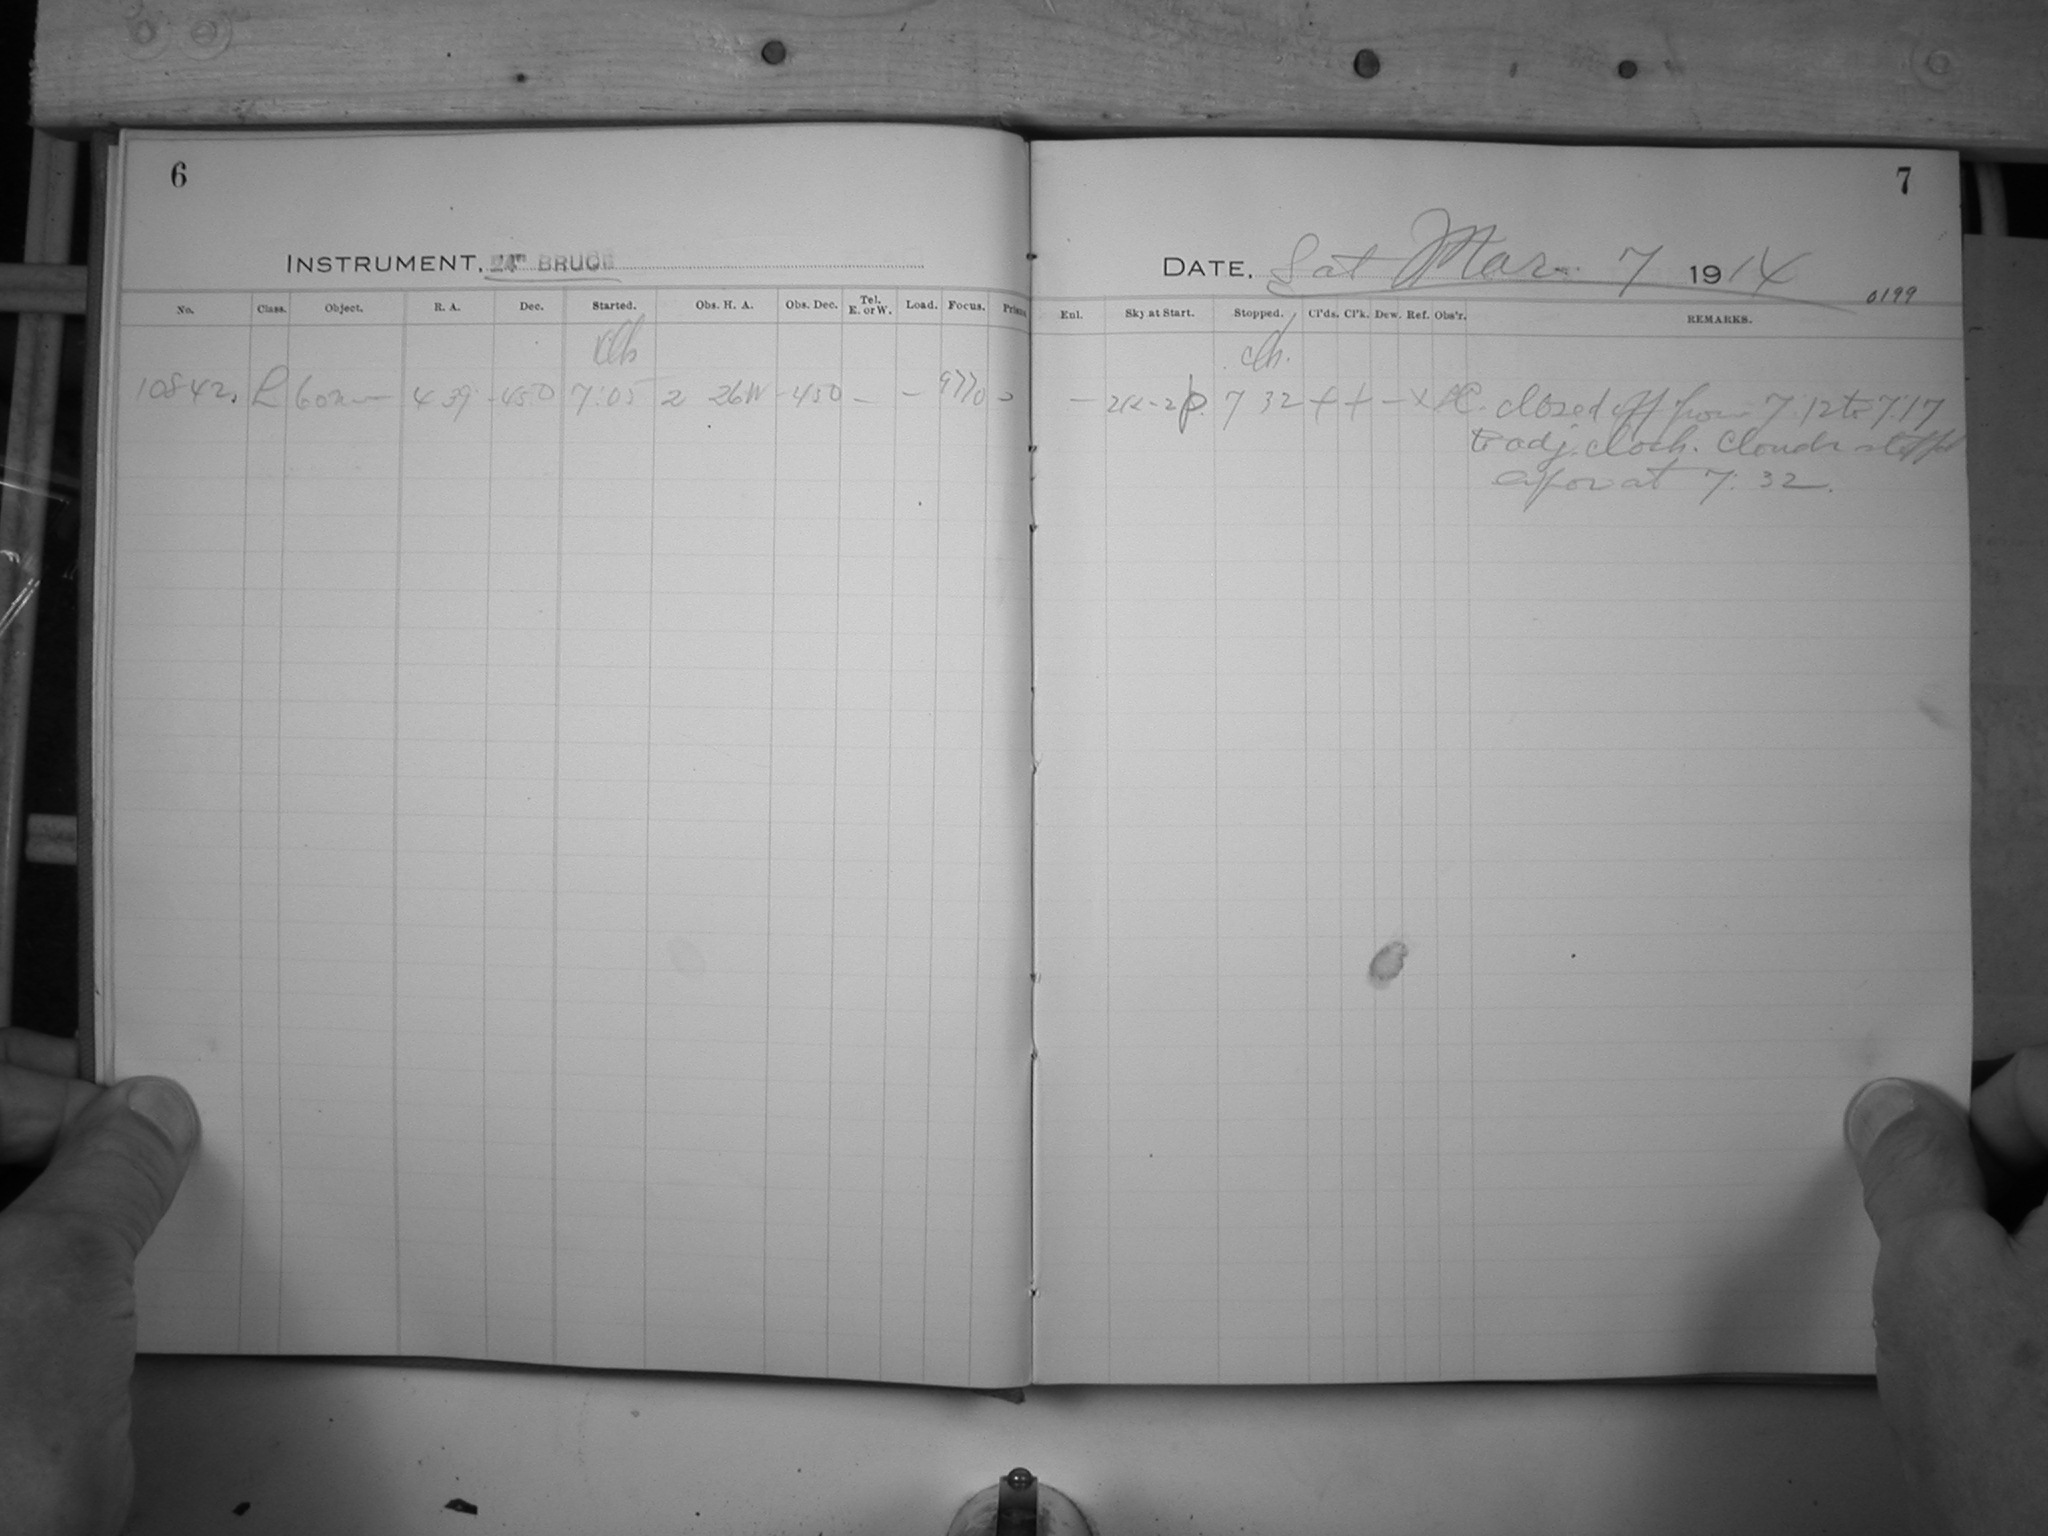 6
7
INSTRUMENT, 24" BRUCE
DATE, Sat Mar. 7 1914
0199
No. Class. Object. R. A. Dec. Started. Obs. H. A. Obs. Dec. Tel. E. or W. Load. Focus. Prism
Enl. Sky at Start. Stopped. Cl'ds. Cl'k. Dew. Ref. Obs'r. REMARKS.
clh.
10842. L 60m 4 39 -450 7:05 2 26W -450 – – 9770
– 7 32 + + – x closed off from 7:12 to 7:17
to adj. clock. Clouds
at 7:32.